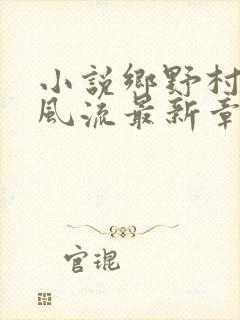 小説鄉野村
風流最新章
官琨